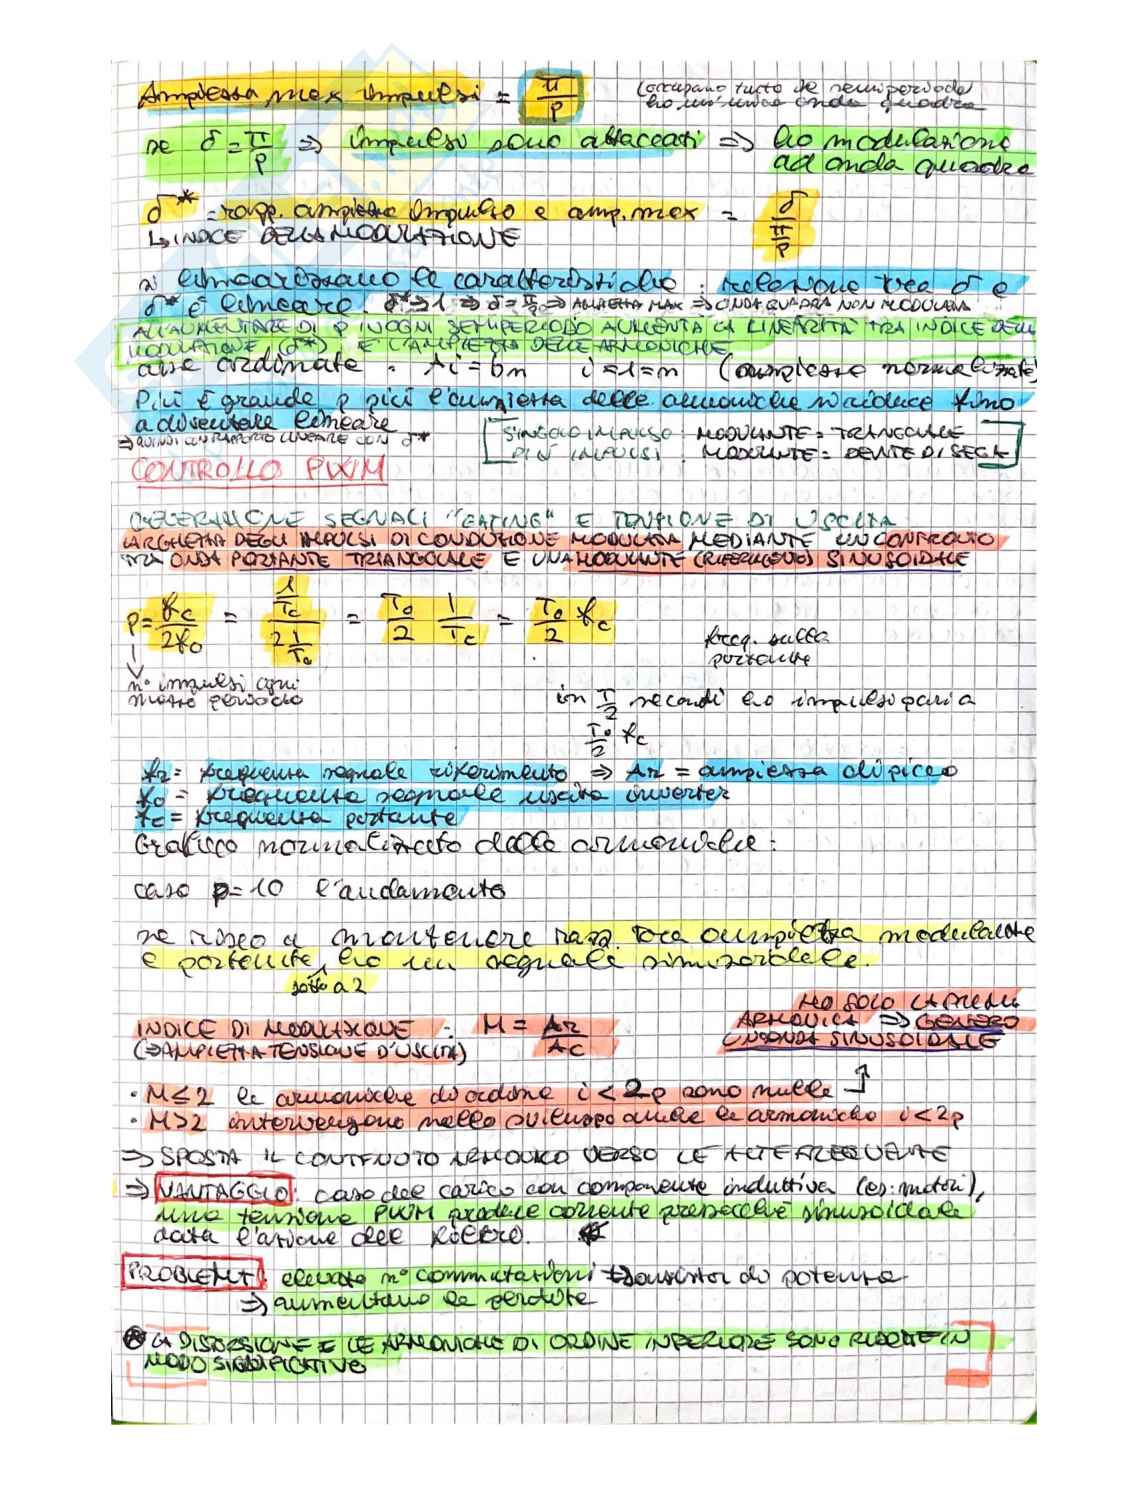 Ampiezza max impulsi = π/p (occupano tutto il semiperiodo
ho un'unica onda quadra
se δ = π/p ⇒ impulsi sono attaccati ⇒ ho modulazione
ad onda quadra
δ* = rapp. ampiezza impulso e amp. max = δ / (π/p)
↳ INDICE DELLA MODULAZIONE
si linearizzano le caratteristiche: relazione tra δ e
δ* è lineare. δ*=1 ⇒ δ = π/p ⇒ AMPIEZZA MAX ⇒ ONDA QUADRA NON MODULATA
ALL'AUMENTARE DI P IN OGNI SEMIPERIODO AUMENTA LA LINEARITÀ TRA INDICE DELLA
MODULAZIONE (δ*) E L'AMPIEZZA DELLE ARMONICHE
asse ordinate = Ai = bn i=1=n (ampiezze normalizzate)
Più è grande p più l'ampiezza delle armoniche si riduce fino
a diventare lineare
⇒ QUINDI CON RAPPORTO LINEARE CON δ*
SINGOLO IMPULSO: MODULANTE = TRIANGOLARE
PIÙ IMPULSI: MODULANTE = DENTE DI SEGA
CONTROLLO PWM
GENERAZIONE SEGNALI "GATING" E TENSIONE DI USCITA
LARGHEZZA DEGLI IMPULSI DI CONDUZIONE MODULATA MEDIANTE UN CONFRONTO
TRA ONDA PORTANTE TRIANGOLARE E UNA MODULANTE (RIFERIMENTO) SINUSOIDALE
p = fc/2fo = (1/Tc)/(2 1/To) = To/2 1/Tc = To/2 fc
freq. sulla
portante
n° impulsi ogni
mezzo periodo
in T/2 secondi ho impulsi pari a
To/2 fc
fr = frequenza segnale riferimento ⇒ Ar = ampiezza di picco
fo = frequenza segnale uscita inverter
fc = frequenza portante
Grafico normalizzato delle armoniche:
caso p=10 l'andamento
se riesco a mantenere rapp. tra ampiezza modulante
e portante, ho un segnale sinusoidale.
sotto a 2
HO SOLO LA PRIMA
INDICE DI MODULAZIONE : M = Ar/Ac ARMONICA ⇒ GENERO
(⇒ AMPIEZZA TENSIONE D'USCITA) UN'ONDA SINUSOIDALE
• M≤2 le armoniche di ordine i < 2p sono nulle
• M>2 intervengono nello sviluppo anche le armoniche i<2p
⇒ SPOSTA IL CONTENUTO ARMONICO VERSO LE ALTE FREQUENZE
⇒ VANTAGGIO: caso del carico con componente induttiva (es: motori),
una tensione PWM produce corrente pressoché sinusoidale
data l'azione del filtro.
PROBLEMI: elevato n° commutazioni transistor di potenza
⇒ aumentano le perdite
LA DISTORSIONE E LE ARMONICHE DI ORDINE INFERIORE SONO RIDOTTE IN
MODO SIGNIFICATIVO